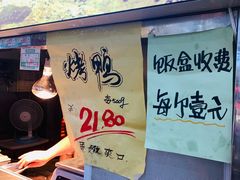 烤鸭
每500g
¥21.80
爽口
饭盒收费
每个壹元